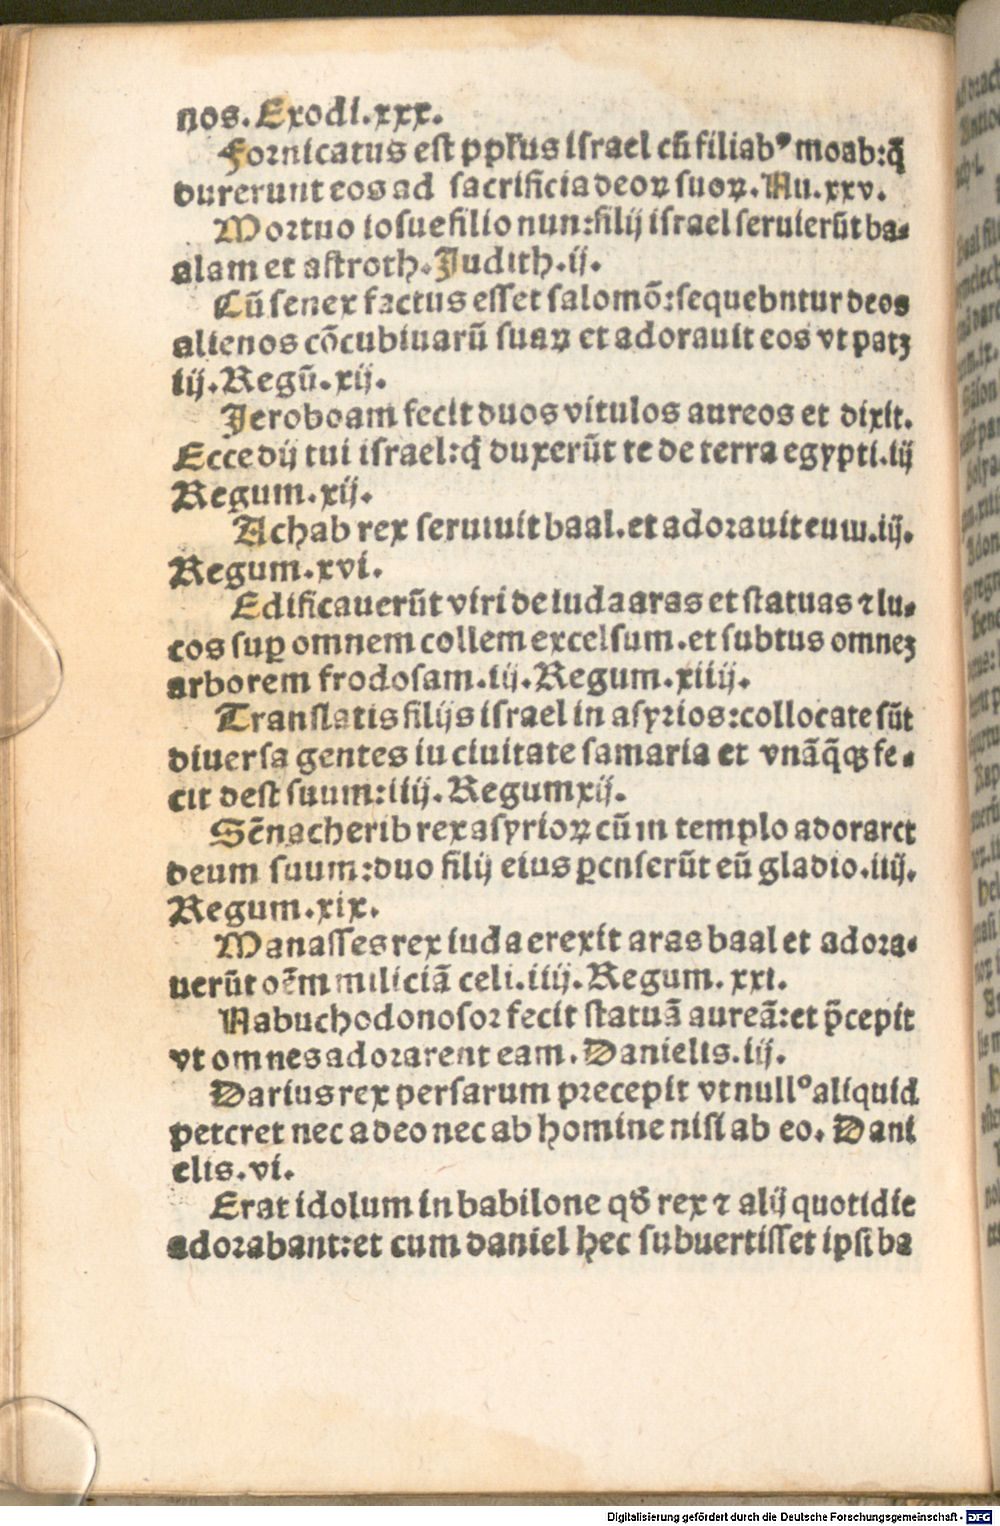 nos. Exodi. xxx.
Fornicatus est pplus israel cū filiabꝰ moab: q̄
duxerunt eos ad sacrificia deoꝝ suoꝝ. Nu. xxv.
Mortuo iosue filio nun: filij israel seruierūt ba⸗
alam et astroth. Judith. ij.
Cū senex factus esset salomō: sequebntur deos
alienos cōcubinarū suaꝝ et adorauit eos vt patꝫ
iij. Regū. xij.
Jeroboam fecit duos vitulos aureos et dixit.
Ecce dij tui israel: q̄ duxerūt te de terra egypti. iij
Regum. xij.
Achab rex seruiuit baal. et adorauit eum. iij.
Regum. xvi.
Edificauerūt viri de iuda aras et statuas ⁊ lu⸗
cos suꝑ omnem collem excelsum. et subtus omneꝫ
arborem frodosam. iij. Regum. xiiij.
Translatis filijs israel in asyrios: collocate sūt
diuersa gentes in ciuitate samaria et vnāq̄qꝫ fe⸗
cit dest suum: iiij. Regum xij.
Sēnacherib rex asyrioꝝ cū in templo adoraret
deum suum: duo filij eius ꝑcnserūt eū gladio. iiij.
Regum. xix.
Manasses rex iuda erexit aras baal et adora⸗
uerūt oēm miliciā celi. iiij. Regum. xxi.
Nabuchodonosor fecit statuā aureā: et p̄cepit
vt omnes adorarent eam. Danielis. iij.
Darius rex persarum precepit vt nullꝰ aliquid
peteret nec a deo nec ab homine nisi ab eo. Dani
elis. vi.
Erat idolum in babilone qđ rex ⁊ alij quotidie
adorabant: et cum daniel hec subuertisset ipsi ba
Digitalisierung gefördert durch die Deutsche Forschungsgemeinschaft - DFG